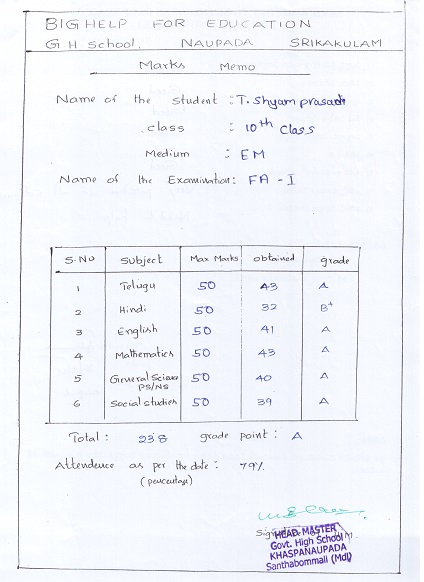 BIGHELP FOR EDUCATION
G H School, NAUPADA SRIKAKULAM
Marks Memo
Name of the Student : T. Shyam prasad
class : 10th Class
Medium : EM
Name of the Examination : FA - I
S.No Subject Max Marks obtained grade
1 Telugu 50 43 A
2 Hindi 50 32 B+
3 English 50 41 A
4 Mathematics 50 43 A
5 General Science PS/NS 50 40 A
6 Social studies 50 39 A
Total : 238 grade point : A
Attendence as per the date : 79%
(percentage)
HEAD MASTER
Govt. High School
KHASPANAUPADA
Santhabommali (Mdl)